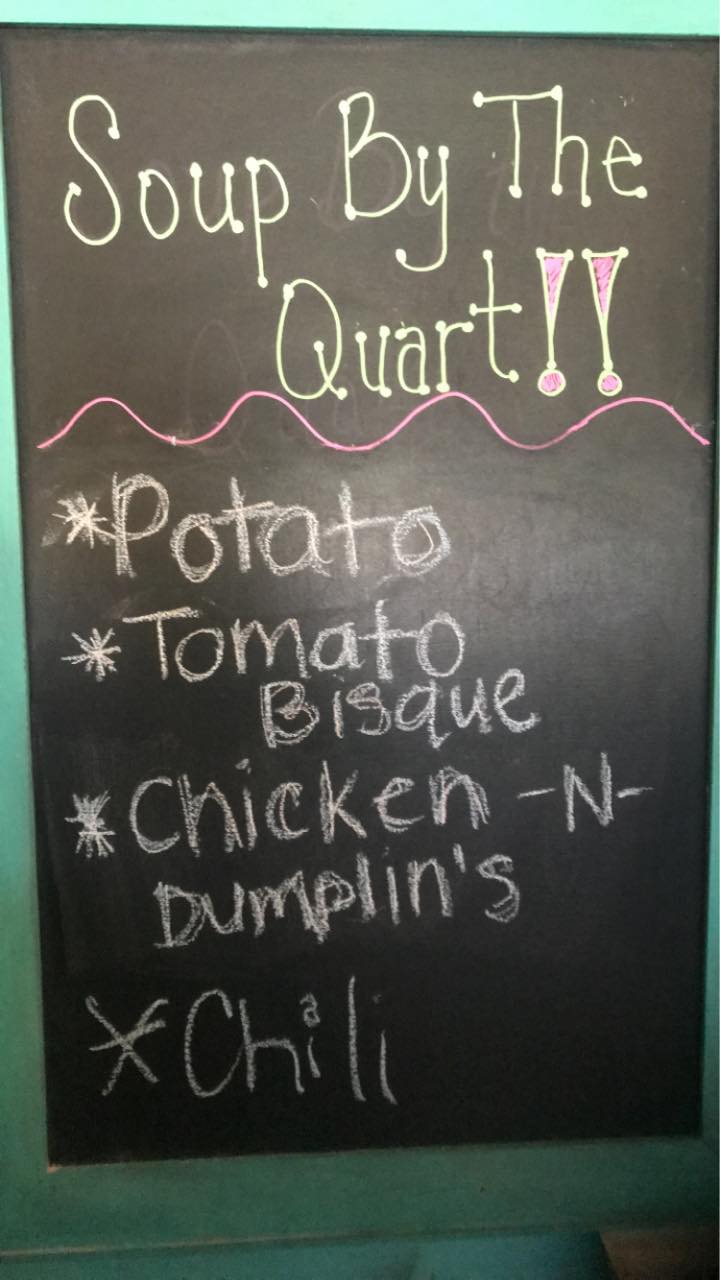 Soup By The
Quart!!
*Potato
*Tomato
Bisque
*Chicken -N-
Dumplin's
*Chili